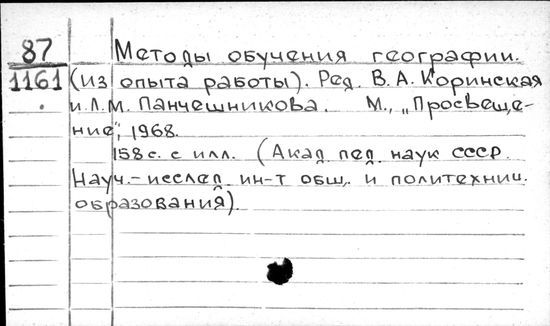 87 Методы обучения географии.
1161 (из опыта работы). Ред. В. А. Коринская
и Л. М. Панчешникова. М., „Просвеще-
ние", 1968.
158 с. с илл. (Акад пед наук СССР.
Науч.-исслед ин-т общ. и политехнич.
образования).